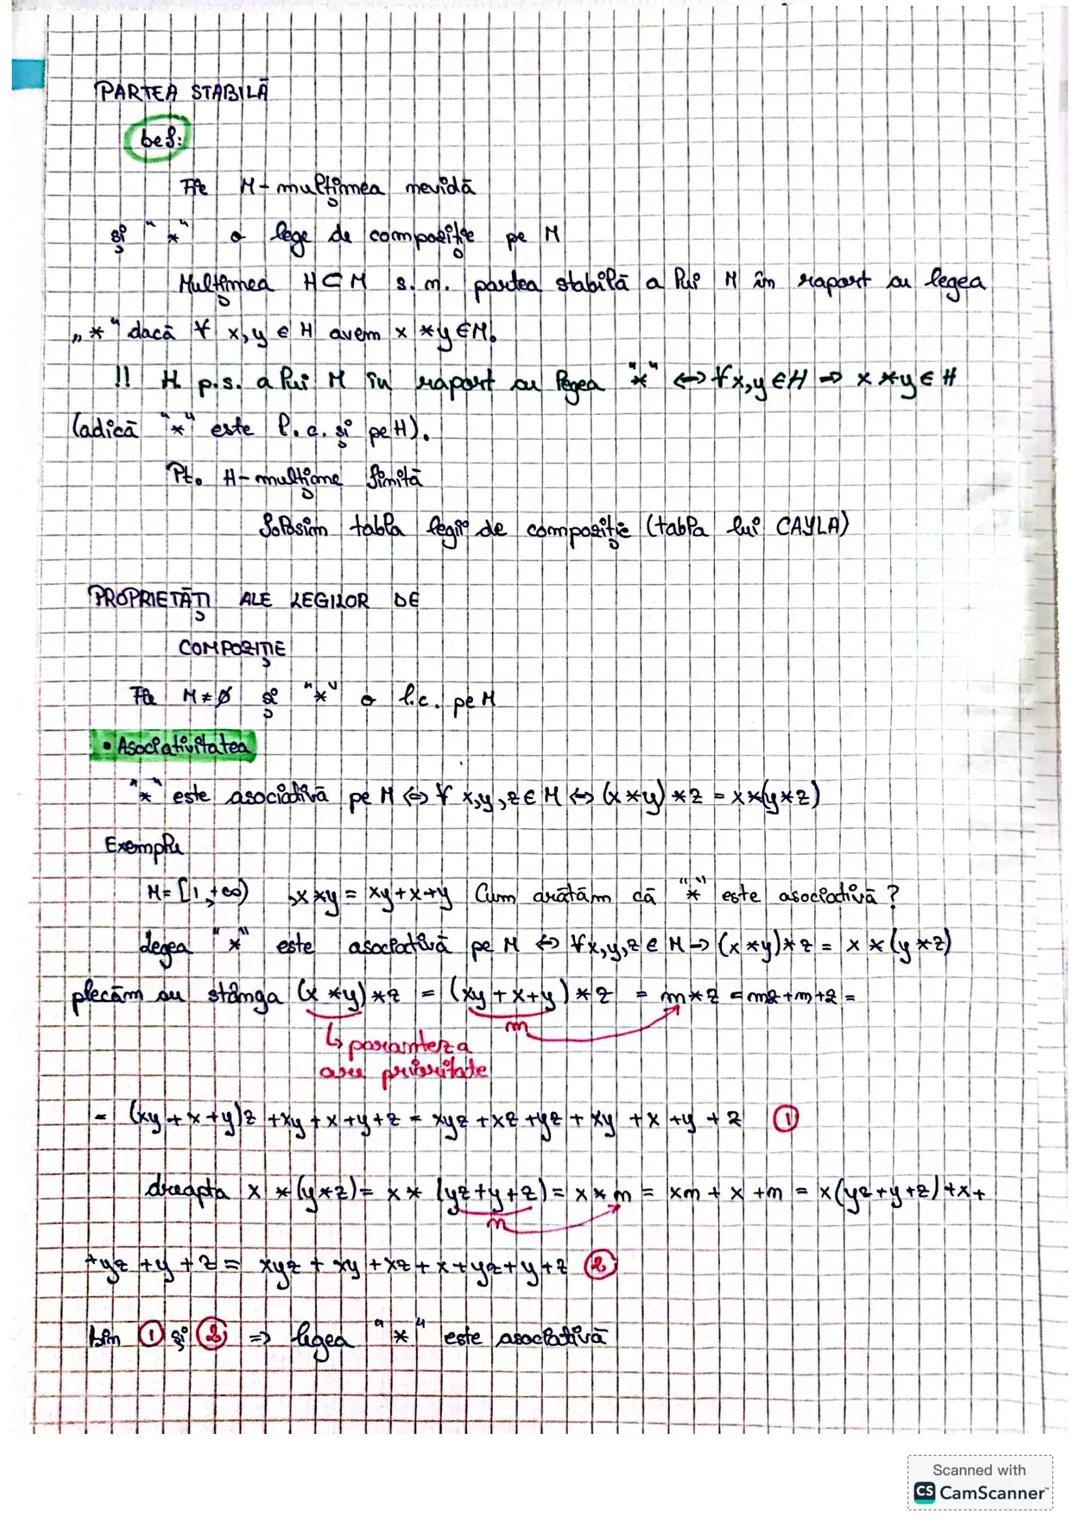 PARTEA STABILĂ
Def:
Fie M-mulțimea nevidă
și "*" o lege de compoziție pe M
Mulțimea H⊂M s.m. partea stabilă a lui M în raport cu legea
„*" dacă ∀ x,y ∈ H avem x *y∈M.
!! H p.s. a lui M în raport cu legea "*" ⟺ ∀x,y∈H ⇒ x*y∈H
(adică "*" este l.c. și pe H).
Pt. H-mulțime finită
folosim tabla legii de compoziție (tabla lui CAYLA)
PROPRIETĂȚI ALE LEGILOR DE
COMPOZIȚIE
Fie M≠∅ și "*" o l.c. pe M
• Asociativitatea
"*" este asociativă pe M ⟺ ∀ x,y,z∈M ⟺ (x*y)*z = x*(y*z)
Exemplu
M=[1,+∞) ,x*y = xy+x+y Cum arătăm că "*" este asociativă?
Legea "*" este asociativă pe M ⟺ ∀x,y,z∈M → (x*y)*z = x*(y*z)
plecăm cu stânga (x*y)*z = (xy+x+y)*z = m*z = mz+m+z =
m
↳ paranteza
are prioritate
= (xy+x+y)z +xy+x+y+z = xyz+xz+yz+xy+x+y+z ①
dreapta x*(y*z) = x*(yz+y+z) = x*m = xm+x+m = x(yz+y+z)+x+
m
+yz+y+z = xyz+xy+xz+x+yz+y+z ②
Din ① și ② ⇒ legea "*" este asociativă
Scanned with
CS CamScanner